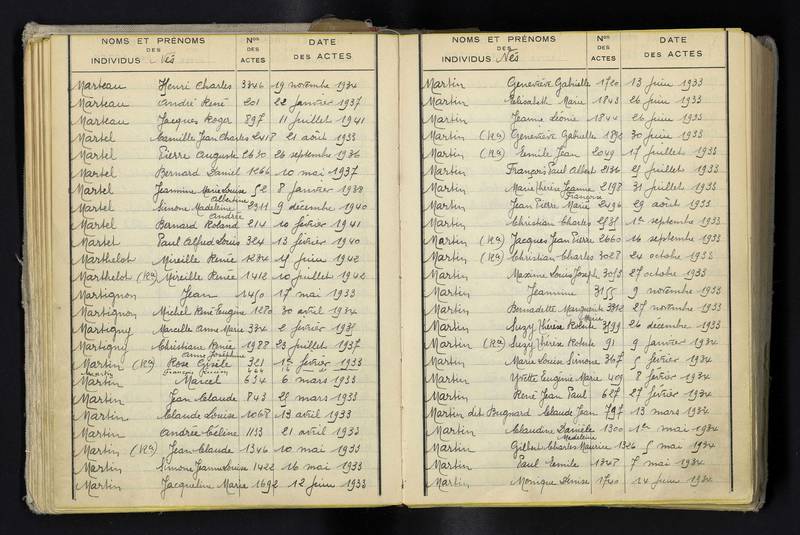 NOMS ET PRÉNOMS
DES
INDIVIDUS Nés
Nos
DES
ACTES
DATE
DES ACTES
Marteau Henri Charles 3346 19 novembre 1934
Marteau André René 201 22 janvier 1937
Marteau Jacques Roger 897 11 juillet 1941
Martel Camille Jean Charles 2418 21 août 1933
Martel Pierre Auguste 2630 26 septembre 1936
Martel Bernard Daniel 1266 10 mai 1937
Martel Jeannine Marie Louise 52 8 janvier 1938
Albertine
Martel Simone Madeleine 2911 9 décembre 1940
Andrée
Martel Bernard Roland 214 10 février 1941
Martet Paul Alfred Louis 324 13 février 1940
Marthelot Mireille Renée 1284 juin 1942
Marthelot (Ra) Mireille Renée 1412 10 juillet 1942
Martignon Jean 1450 17 mai 1933
Martignon Michel René Eugène 1280 30 avril 1934
Martigny Marcelle Anne Marie 334 2 février 1935
Martigny Christiane Renée 1988 23 juillet 1937
Anne Joséphine
Martin (Ra) Rose Gisèle 321 1er février 1933
Martin François 464 16
Martin Marcel 634 6 mars 1933
Martin Jean Claude 843 25 mars 1933
Martin Claude Louise 1068 13 avril 1933
Martin Andrée Céline 1133 21 avril 1933
Martin (Ra) Jean Claude 1346 10 mai 1933
Martin Simone Jeanne Louise 1422 16 mai 1933
Martin Jacqueline Marie 1692 12 juin 1933
NOMS ET PRÉNOMS
DES
INDIVIDUS Nés
Nos
DES
ACTES
DATE
DES ACTES
Martin Geneviève Gabrielle 1720 13 juin 1933
Martin Elisabeth Marie 1843 26 juin 1933
Martin Jeanne Léonie 1844 26 juin 1933
Martin (Ra) Geneviève Gabrielle 1892 30 juin 1933
Martin (Ra) Emile Jean 2049 17 juillet 1933
Martin François Paul Albert 2136 25 juillet 1933
Martin Marie Thérèse Jeanne 2198 31 juillet 1933
Françoise
Martin Jean Pierre Marie 2496 29 août 1933
Martin Christian Charles 2535 1er septembre 1933
Martin (Ra) Jacques Jean Pierre 2660 16 septembre 1933
Martin (Ra) Christian Charles 3028 24 octobre 1933
Martin Maxime Louis Joseph 3053 27 octobre 1933
Martin Jeannine 3155 9 novembre 1933
Martin Bernadette Marguerite 3312 27 novembre 1933
Marie
Martin Suzy Thérèse Rolente 3599 26 décembre 1933
Martin (Ra) Suzy Thérèse Rolente 91 9 janvier 1934
Martin Marie Louise Simone 367 5 février 1934
Martin Yvette Eugénie Marie 409 8 février 1934
Martin René Jean Paul 627 27 février 1934
Martin dit Bugnard Claude Jean 797 13 mars 1934
Martin Claudine Danièle 1300 1er mai 1934
Madeleine
Martin Gilbert Charles Maurice 1326 5 mai 1934
Martin Paul Emile 1348 7 mai 1934
Martin Monique Denise 1740 14 juin 1934